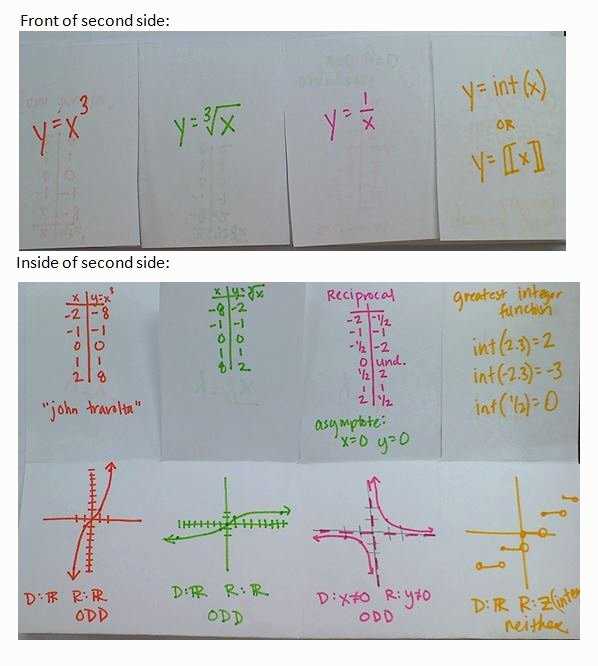 Front of second side:
y=x³
y=∛x
y=1/x
y=int(x)
OR
y=⟦x⟧
Inside of second side:
x | y=x³
-2 | -8
-1 | -1
0 | 0
1 | 1
2 | 8
"john travolta"
x | y=∛x
-8 | -2
-1 | -1
0 | 0
1 | 1
8 | 2
Reciprocal
-2 | -1/2
-1 | -1
-1/2 | -2
0 | und.
1/2 | 2
1 | 1
2 | 1/2
asymptote:
x=0 y=0
greatest integer
function
int(2.3)=2
int(-2.3)=-3
int(1/2)=0
D:ℝ R:ℝ
ODD
D:ℝ R:ℝ
ODD
D:x≠0 R:y≠0
ODD
D:ℝ R:Z(inte
neither